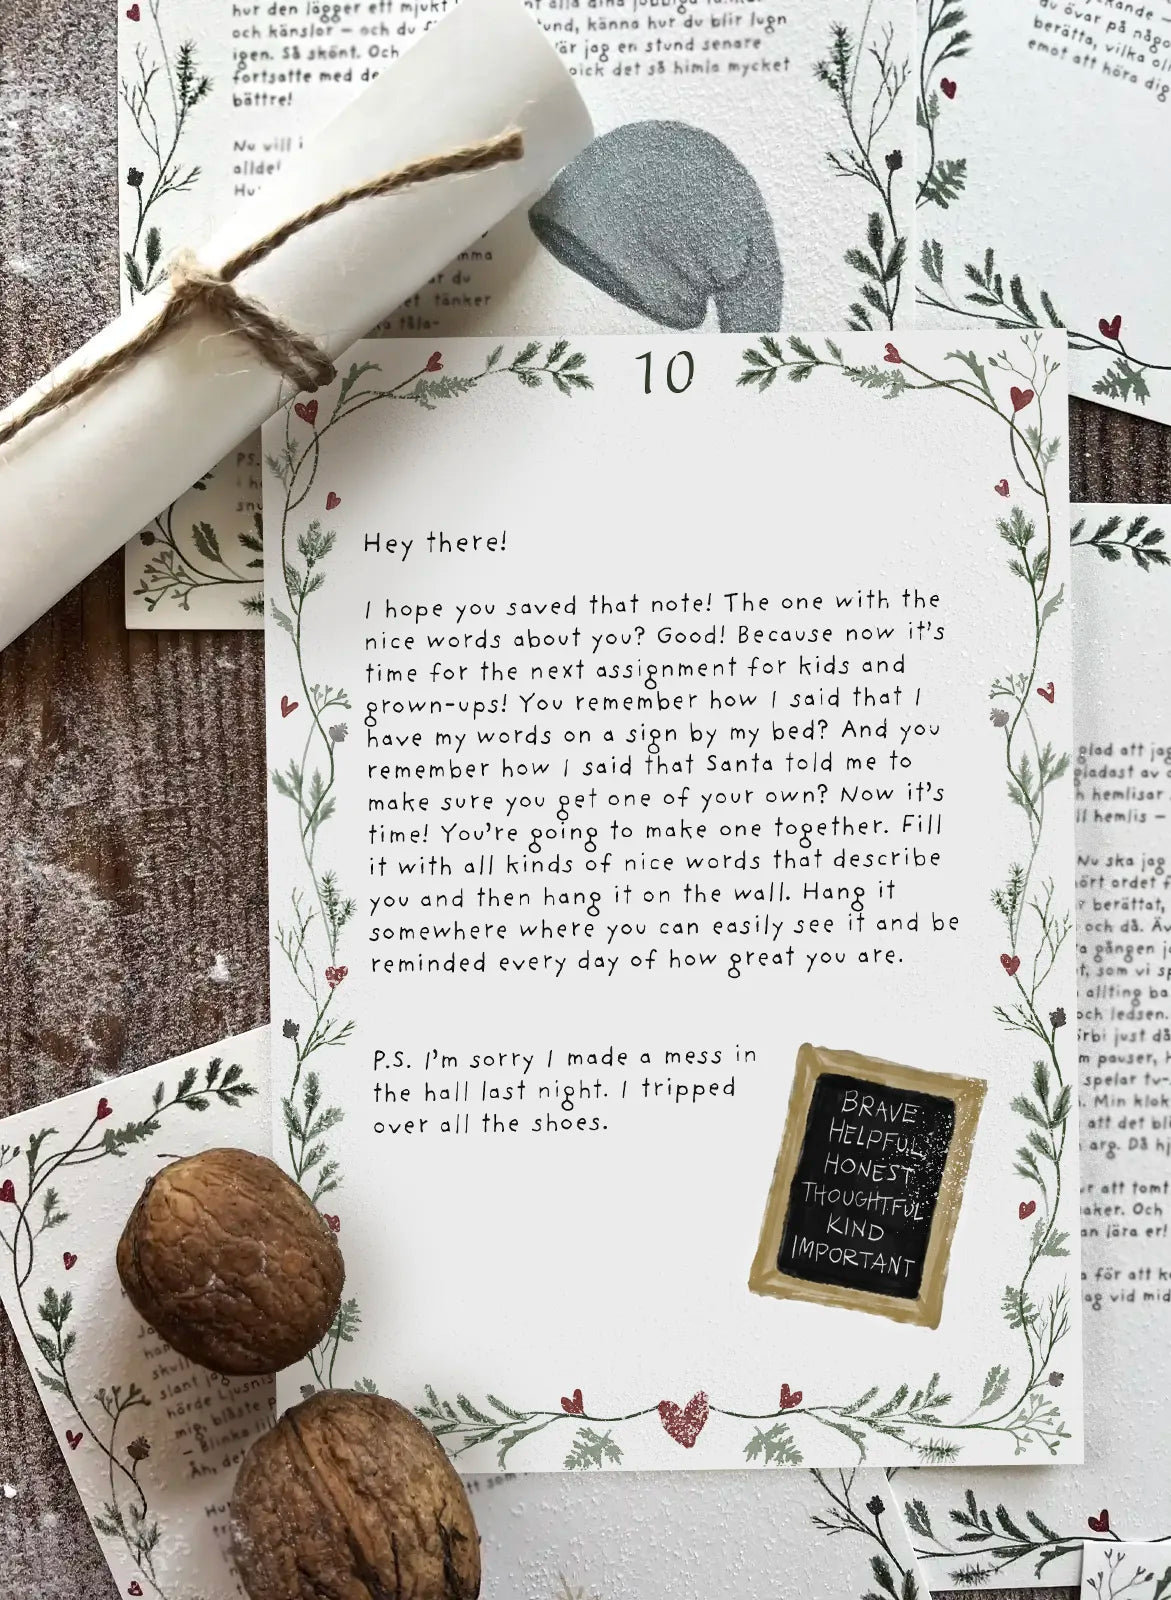 hur den lägger ett mjukt
och känslor – och du
igen. Så skönt. Och
fortsatte med de
bättre!
stund, känna hur du blir lugn
är jag en stund senare
gick det så himla mycket
Nu vill
du övar på någo
berätta, vilka
emot att höra dig
10
Hey there!
I hope you saved that note! The one with the
nice words about you? Good! Because now it's
time for the next assignment for kids and
grown-ups! You remember how I said that I
have my words on a sign by my bed? And you
remember how I said that Santa told me to
make sure you get one of your own? Now it's
time! You're going to make one together. Fill
it with all kinds of nice words that describe
you and then hang it on the wall. Hang it
somewhere where you can easily see it and be
reminded every day of how great you are.
P.S. I'm sorry I made a mess in
the hall last night. I tripped
over all the shoes.
BRAVE
HELPFUL
HONEST
THOUGHTFUL
KIND
IMPORTANT
glad att jag
gladast av
hemlisar
hemlis –
Nu ska jag
ört ordet
berättat,
och då.
gången
som vi
allting
och ledsen.
just då
pauser,
spelar tv-
Min
att det
arg. Då
att
aker. Och
lära er!
för att
vid
hörde
mig, blåste
– Blinka